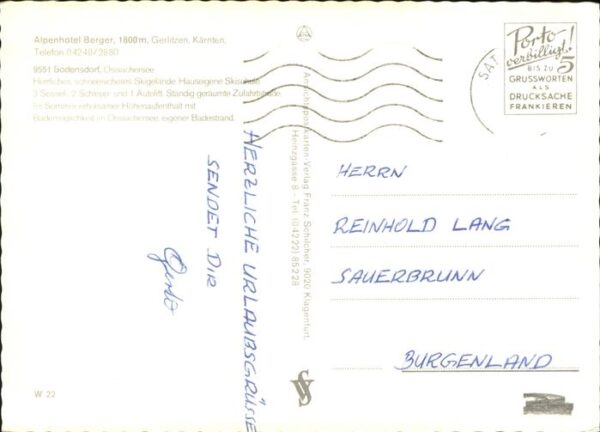 Alpenhotel Berger, 1800m, Gerlitzen, Kärnten,
Telefon 04248/2880
9551 Bodensdorf, Ossiachersee
Herrliches, schneesicheres Skigelände. Hauseigene Skischule.
3 Sessel-, 2 Schlepper und 1 Autolift. Ständig geräumte Zufahrtstraße.
Im Sommer erholsamer Höhenaufenthalt mit
Bademöglichkeit im Ossiachersee, eigener Badestrand.
HERZLICHE URLAUBSGRÜSSE
SENDET DIR
Gerda
W 22
Ansichtspostkarten-Verlag Franz Schilcher, 9020 Klagenfurt,
Heinzgasse 8 - Tel (04222) 85228
SAT
Porto
verbilligt!
BIS ZU 5
GRUSSWORTEN
ALS
DRUCKSACHE
FRANKIEREN
HERRN
REINHOLD LANG
SAUERBRUNN
BURGENLAND